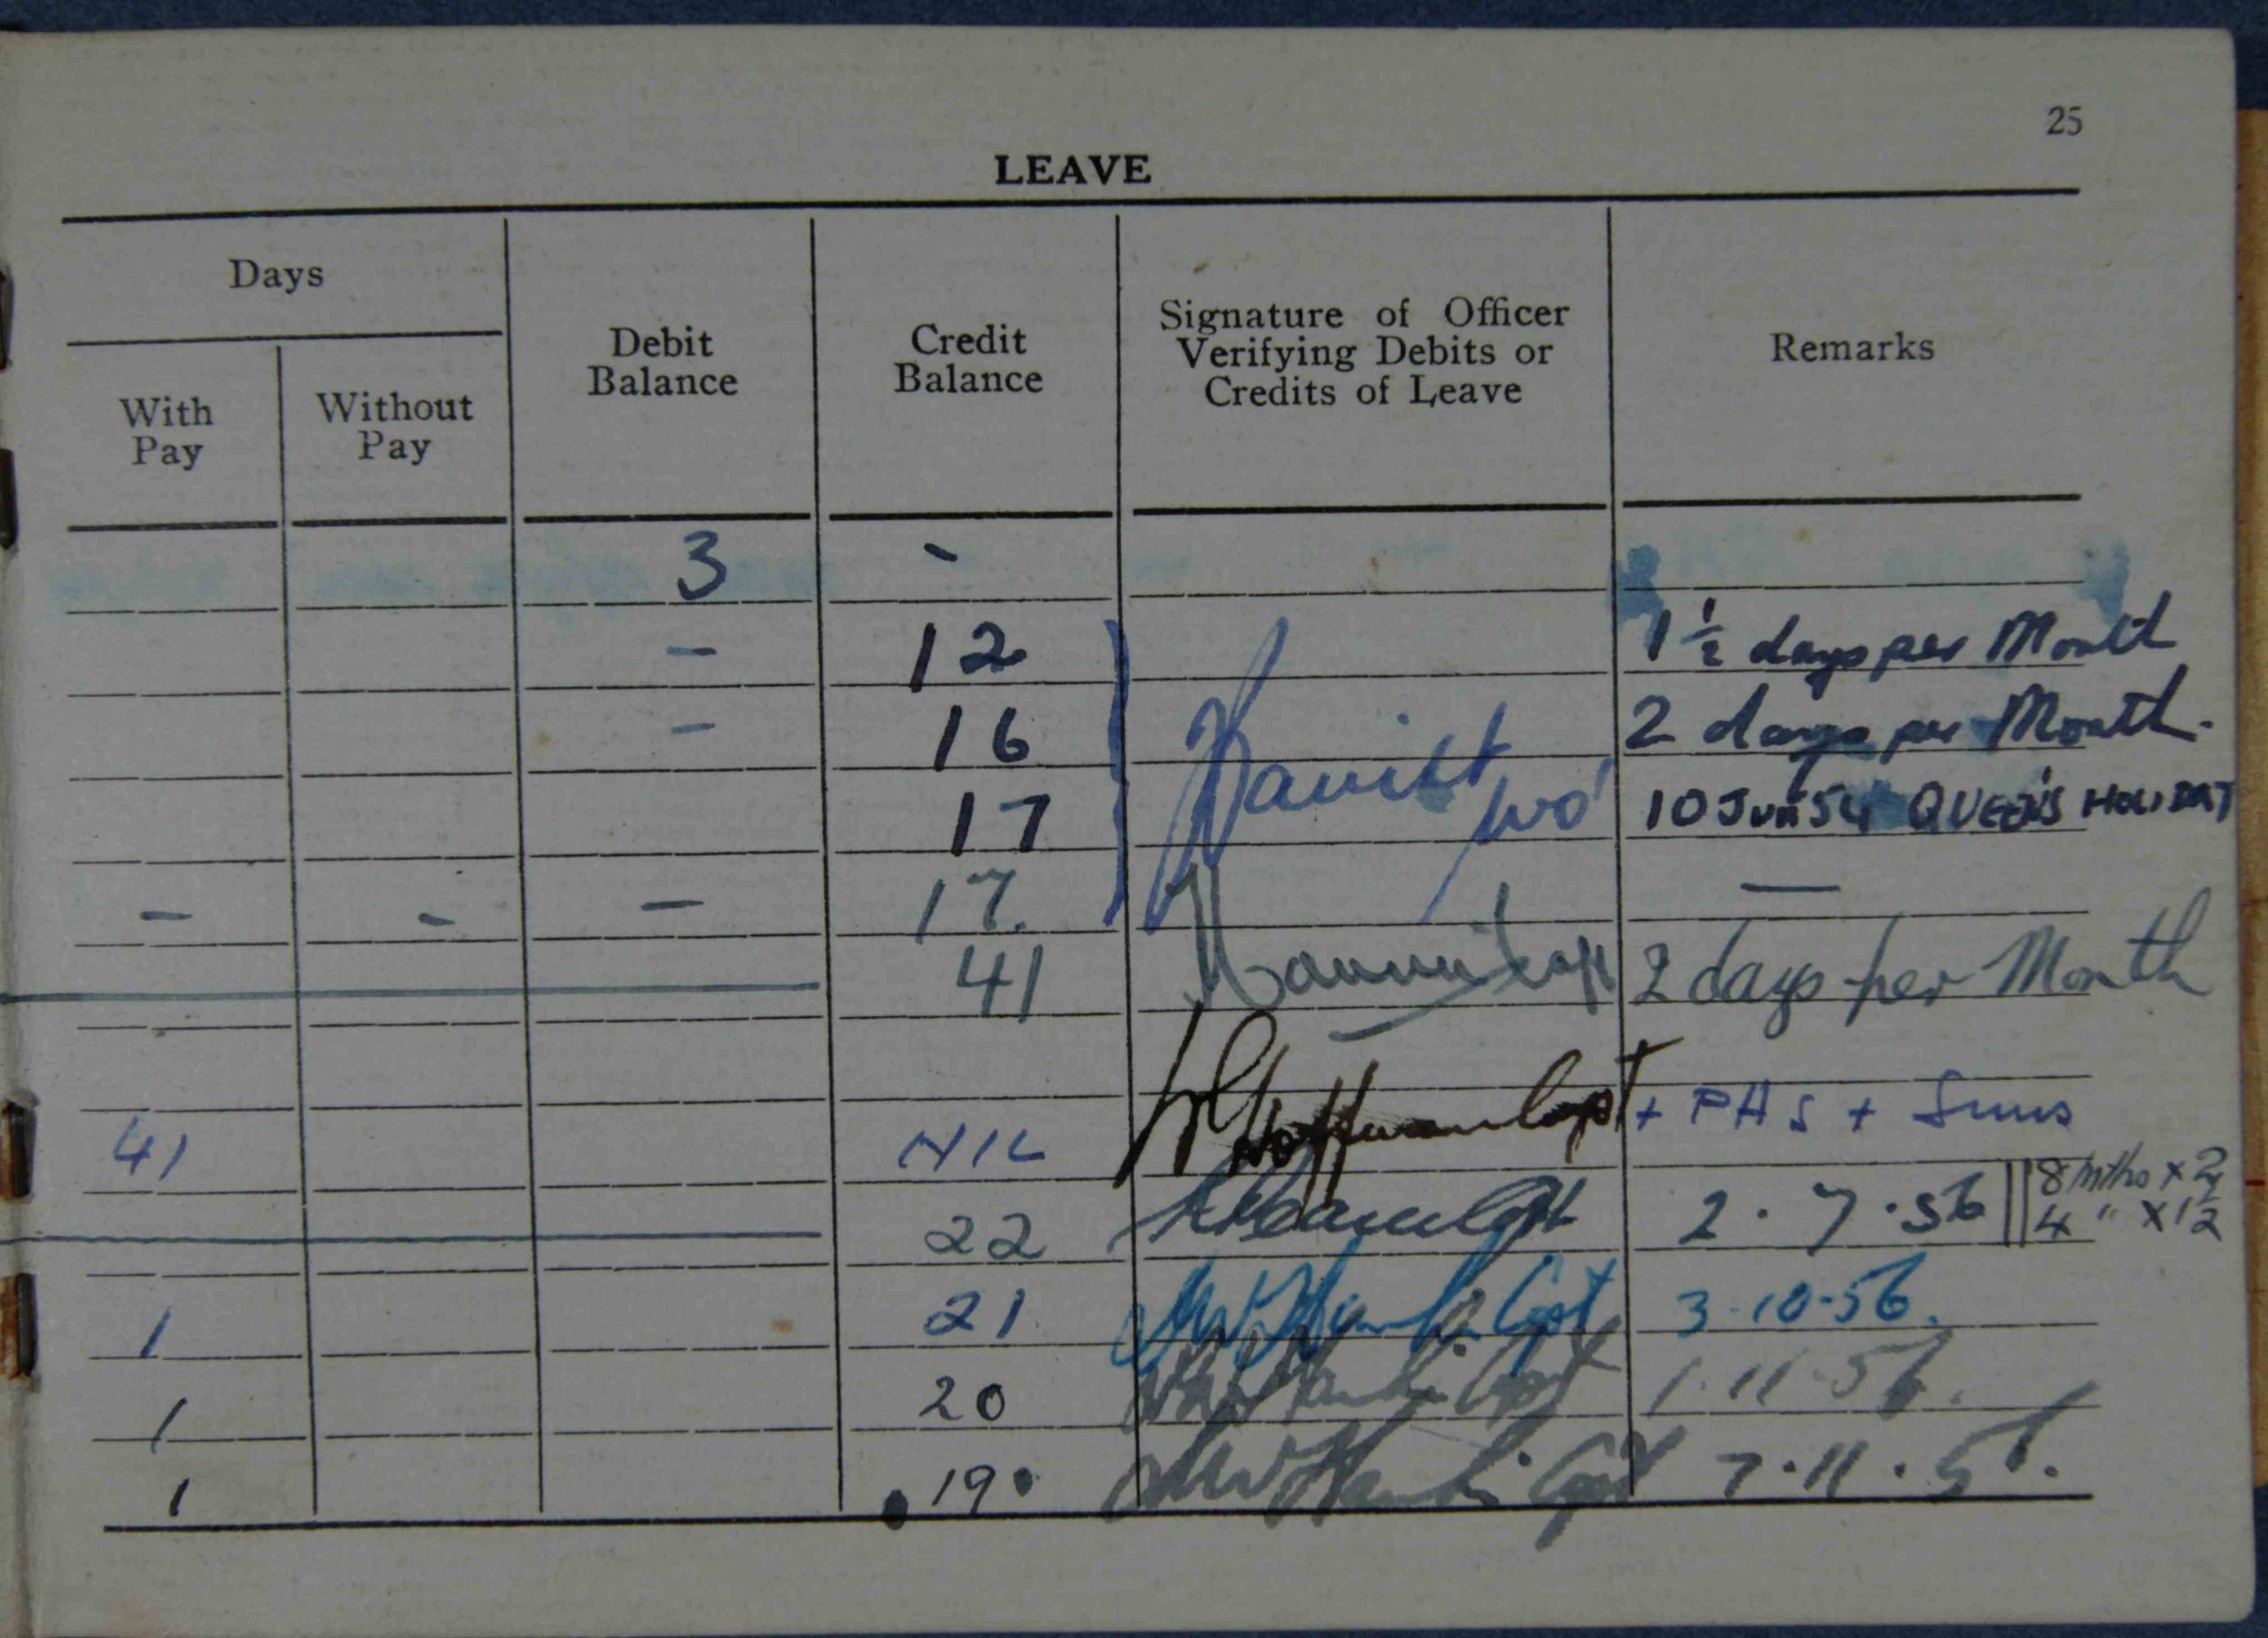 25
LEAVE
Days
With Pay
Without Pay
Debit Balance
Credit Balance
Signature of Officer Verifying Debits or Credits of Leave
Remarks
3 -
- 12 1 1/2 days per Month
- 16 2 days per Month.
17 10 Jun 54 QUEEN'S HOLIDAY
- - - 17. —
41 2 days per Month
41 NIL Hoffman Capt + PHS + Suns
22 Capt 2.7.56 || 8 mths x 2
4 " x 1 1/2
1 21 Capt 3-10-56.
1 20 Capt 1.11.56.
1 19 Capt 7.11.56.